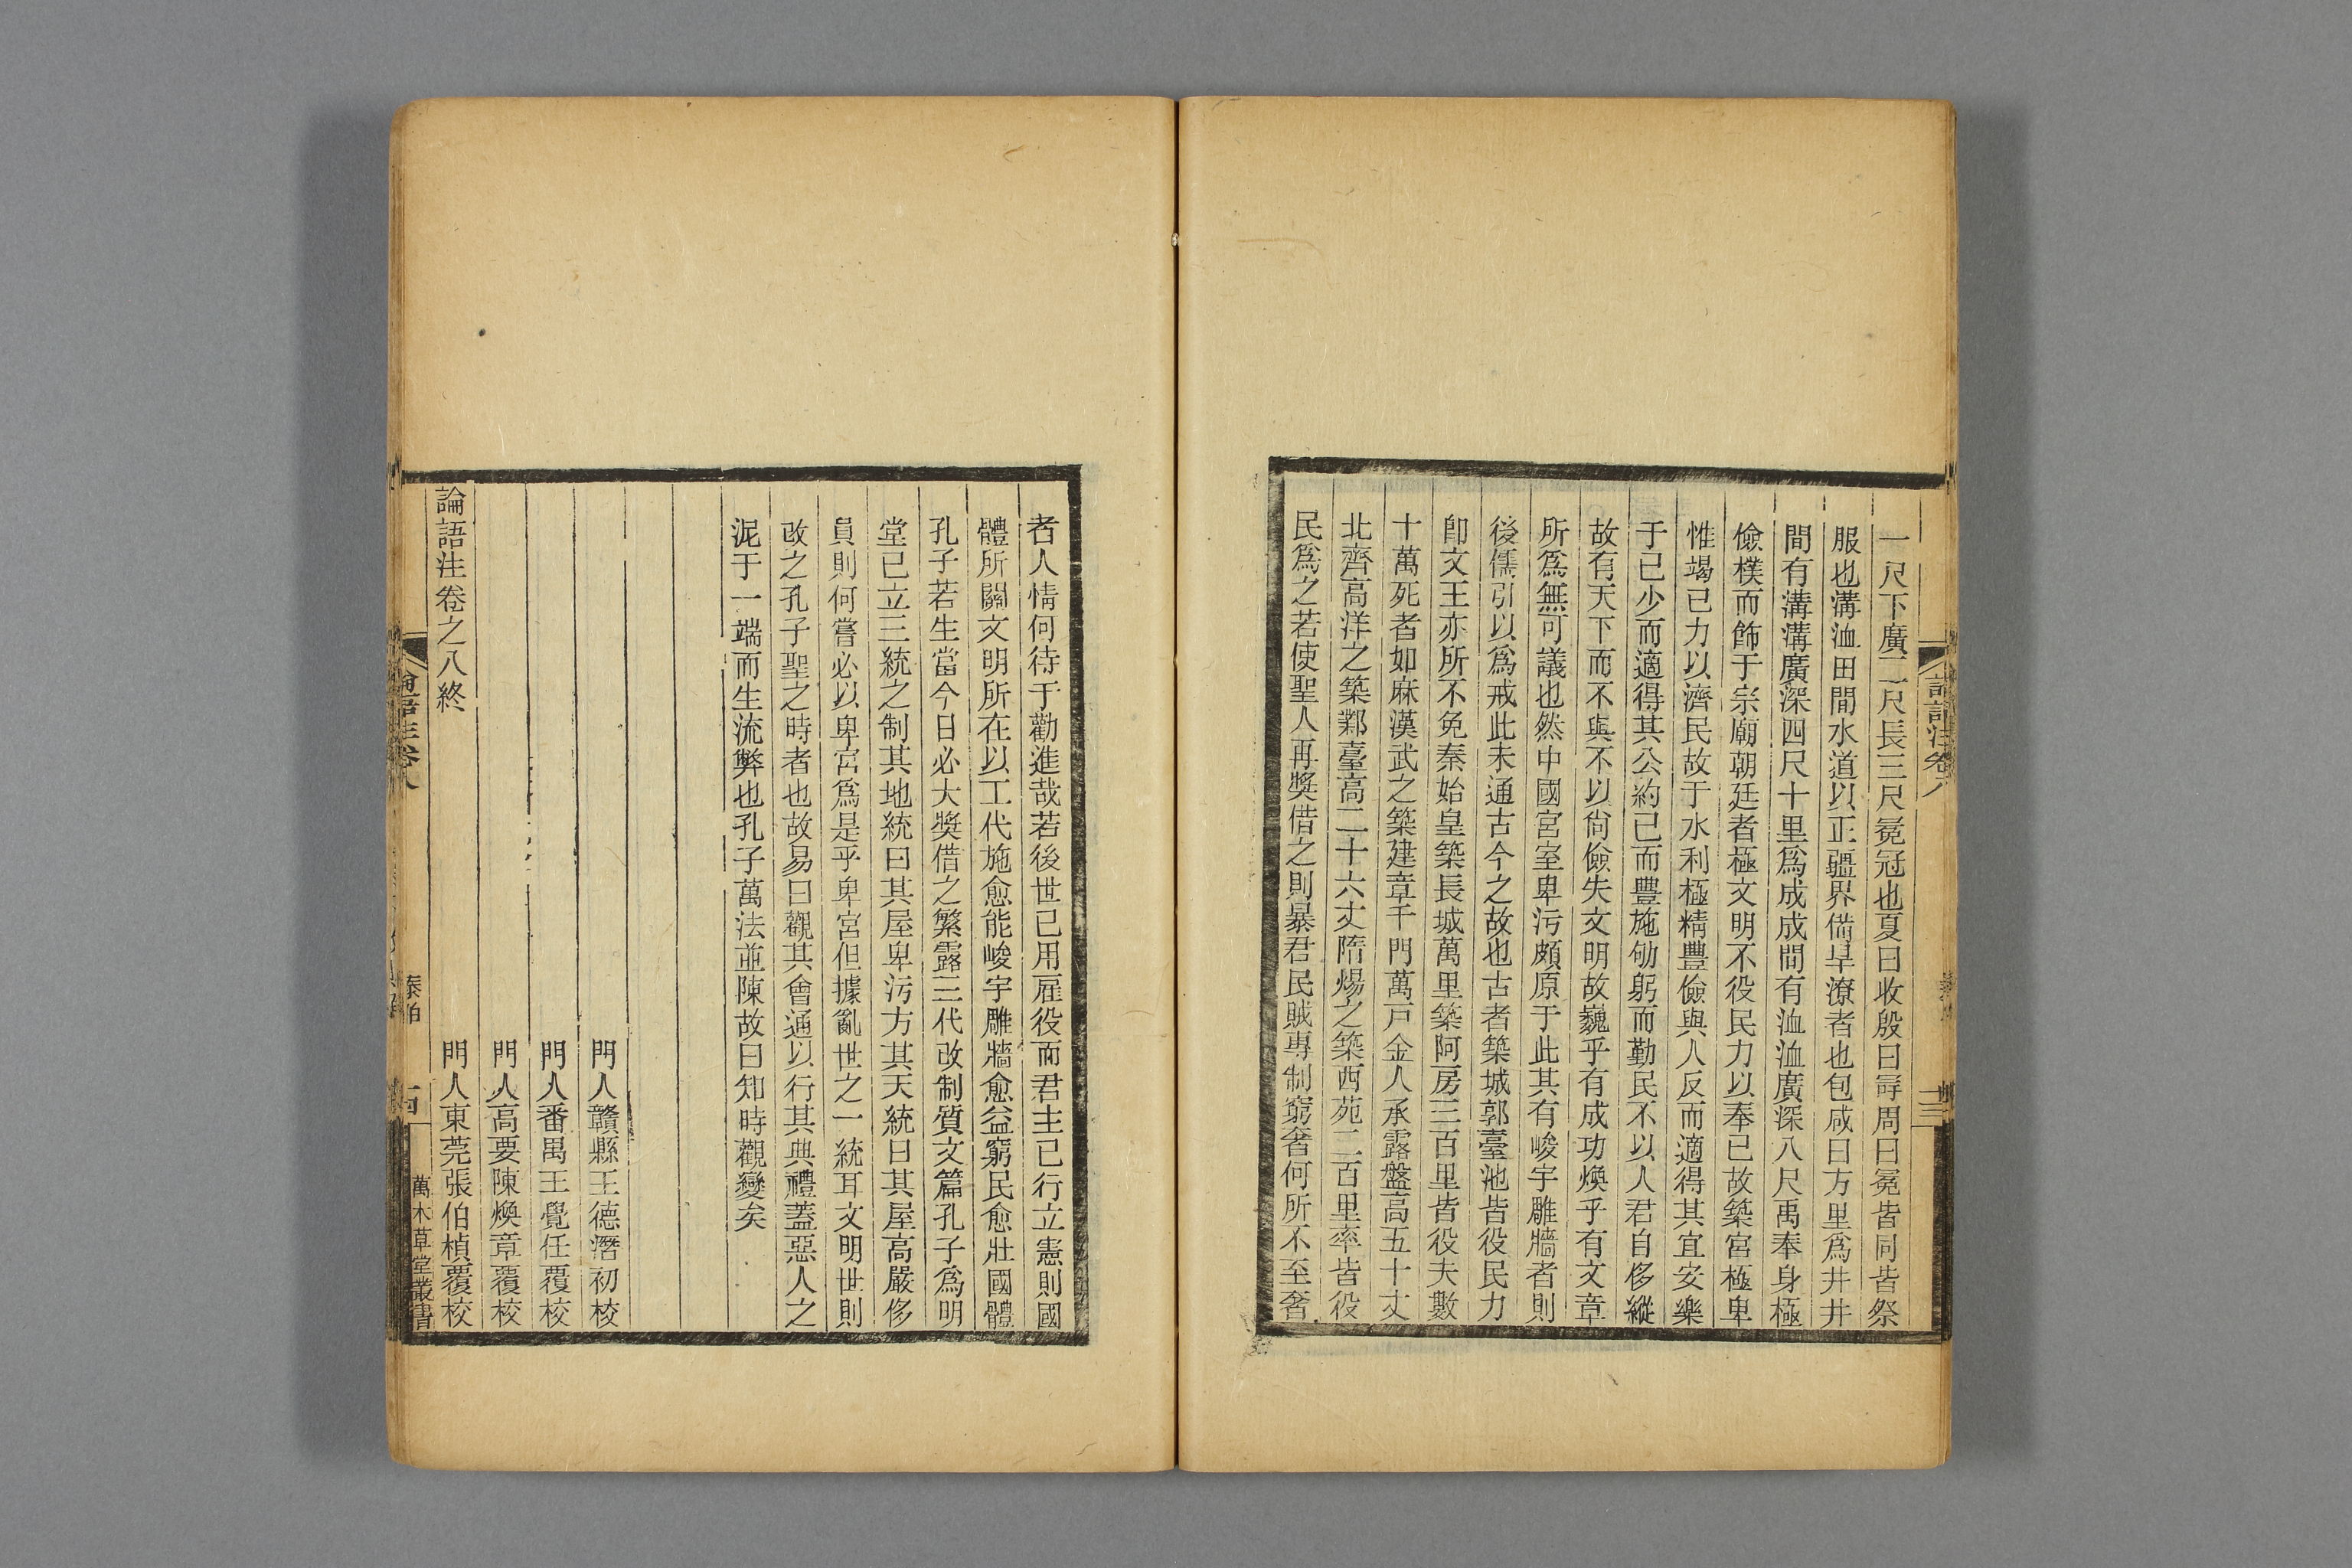 一尺下廣二尺長三尺冕冠也夏曰收殷曰冔周曰冕皆同皆祭
服也溝洫田間水道以正疆界備旱潦者也包咸曰方里爲井井
間有溝溝廣深四尺十里爲成成間有洫洫廣深八尺禹奉身極
儉樸而飾于宗廟朝廷者極文明不役民力以奉己故築宮極卑
惟竭己力以濟民故于水利極精豐儉與人反而適得其宜安樂
于己少而適得其公約己而豐施劬躬而勤民不以人君自侈縱
故有天下而不與不以尙儉失文明故巍乎有成功煥乎有文章
所爲無可議也然中國宮室卑污頗原于此其有峻宇雕牆者則
後儒引以爲戒此未通古今之故也古者築城郭臺池皆役民力
卽文王亦所不免秦始皇築長城萬里築阿房三百里皆役夫數
十萬死者如麻漢武之築建章千門萬戸金人承露盤高五十丈
北齊高洋之築鄴臺高二十六丈隋煬之築西苑二百里率皆役
民爲之若使聖人再獎借之則暴君民賊專制窮奢何所不至奢
論語注卷八
十三
者人情何待于勸進哉若後世已用雇役而君主已行立憲則國
體所關文明所在以工代施愈能峻宇雕牆愈益窮民愈壯國體
孔子若生當今日必大獎借之繁露三代改制質文篇孔子爲明
堂已立三統之制其地統曰其屋卑污方其天統曰其屋高嚴侈
員則何嘗必以卑宮爲是乎卑宮但據亂世之一統耳文明世則
改之孔子聖之時者也故易曰觀其會通以行其典禮蓋惡人之
泥于一端而生流弊也孔子萬法並陳故曰知時觀變矣
門人贛縣王德潛初校
門人番禺王覺任覆校
門人高要陳煥章覆校
論語注卷之八終
門人東莞張伯楨覆校
論語注卷八
泰伯
十四
萬木草堂叢書